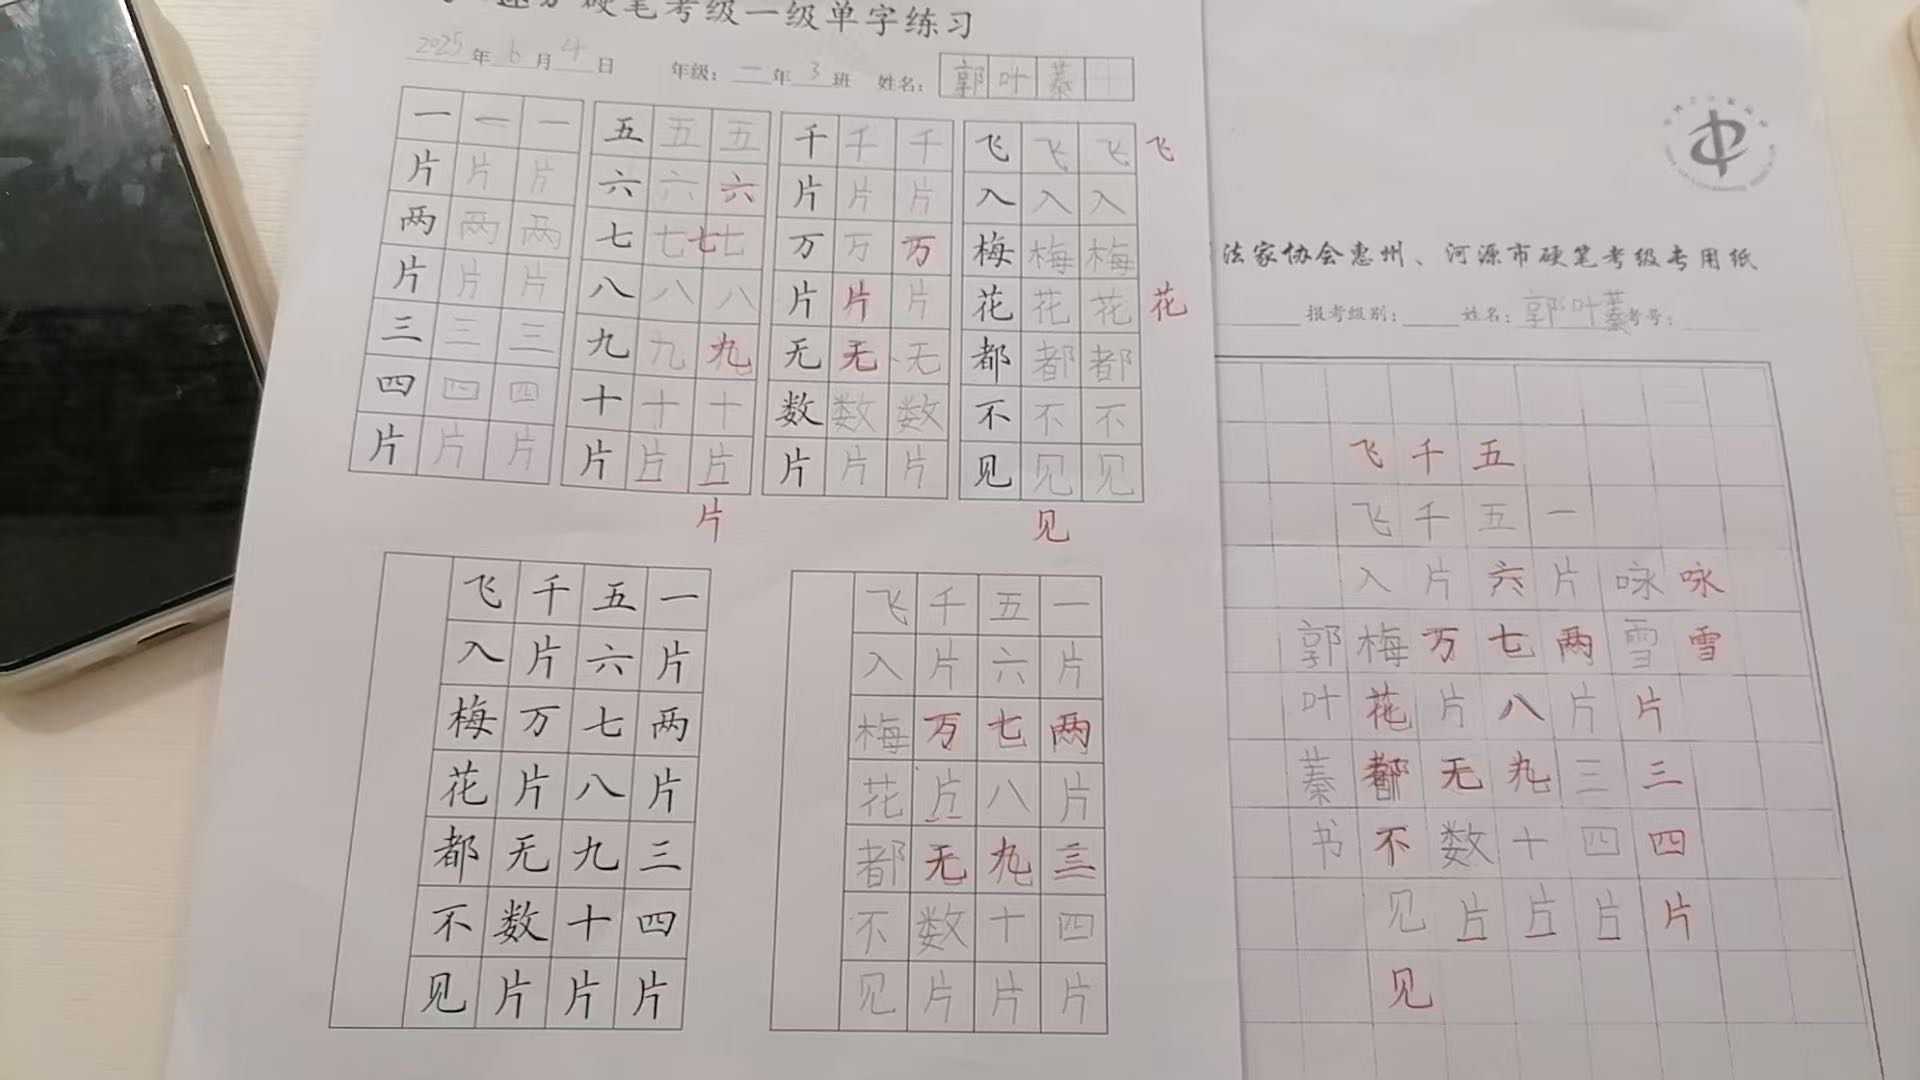 硬笔考级一级单字练习
2025年6月4日 年级:二年3班 姓名:郭叶蓁
一一一 五五五 千千千 飞飞飞飞
片片片 六六六 片片片 入入入
两两两 七七七七 万万万 梅梅梅
片片片 八八八 片片片 花花花花
三三三 九九九 无无无 都都都
四四四 十十十 数数数 不不不
片片片 片片片 片片片 见见见
片 见
飞千五一
入片六片
梅万七两
花片八片
都无九三
不数十四
见片片片
飞千五一
入片六片
梅万七两
花片八片
都无九三
不数十四
见片片片
法家协会惠州、河源市硬笔考级专用纸
报考级别: 姓名:郭叶蓁 考号:
飞千五
飞千五一
入片六片咏咏
郭梅万七两雪雪
叶花片八片片
蓁都无九三三
书不数十四四
见片片片片
见